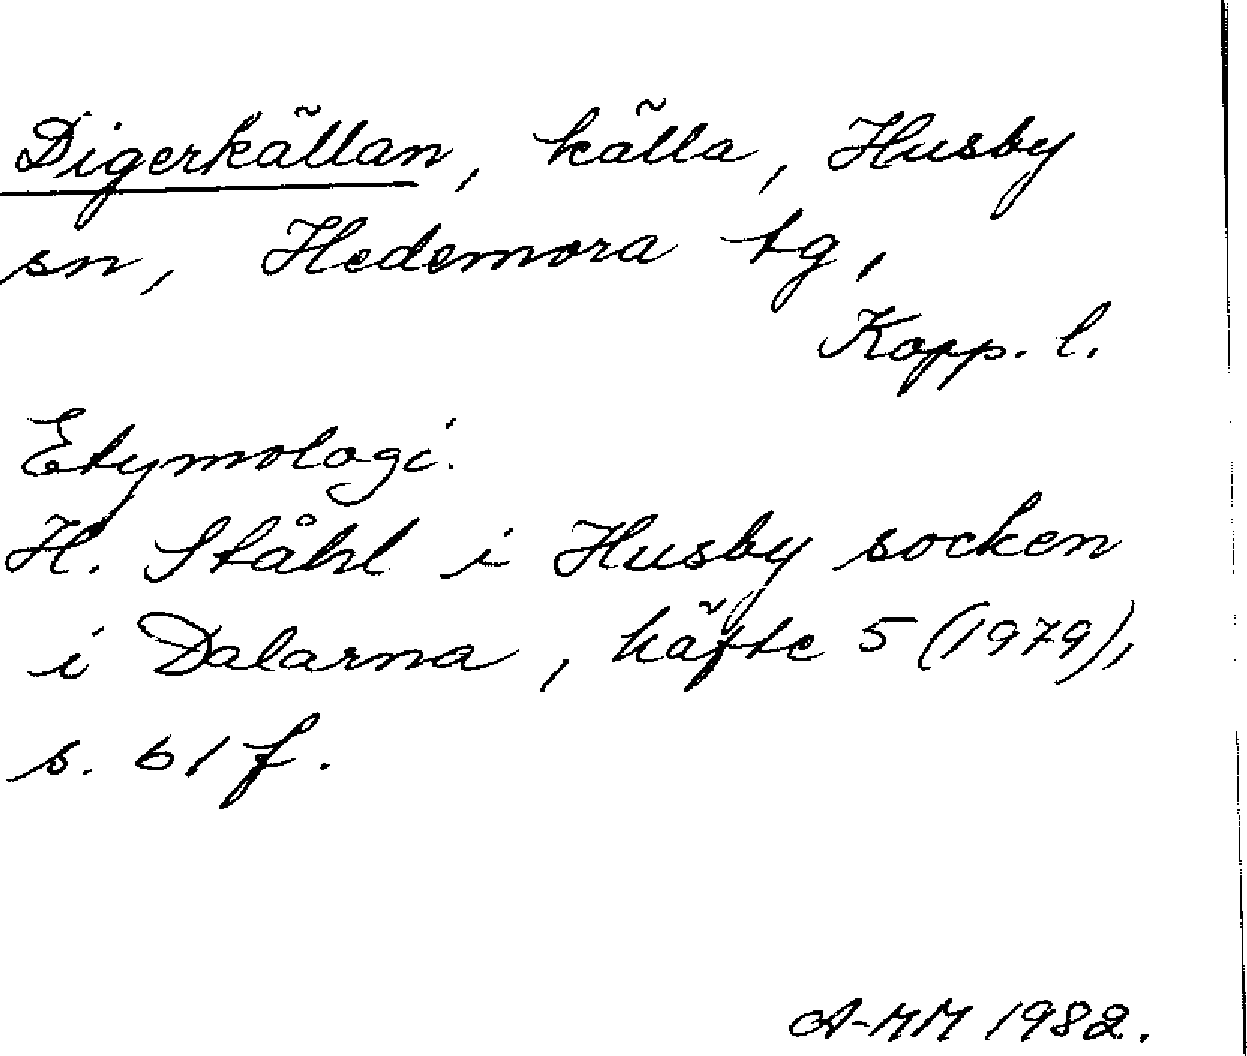 Digerkällan, källa, Husby
sn, Hedemora tg,
Kopp. l.
Etymologi.
H. Ståhl i Husby socken
i Dalarna, häfte 5 (1979),
s. 61 f.
A-MM 1982.